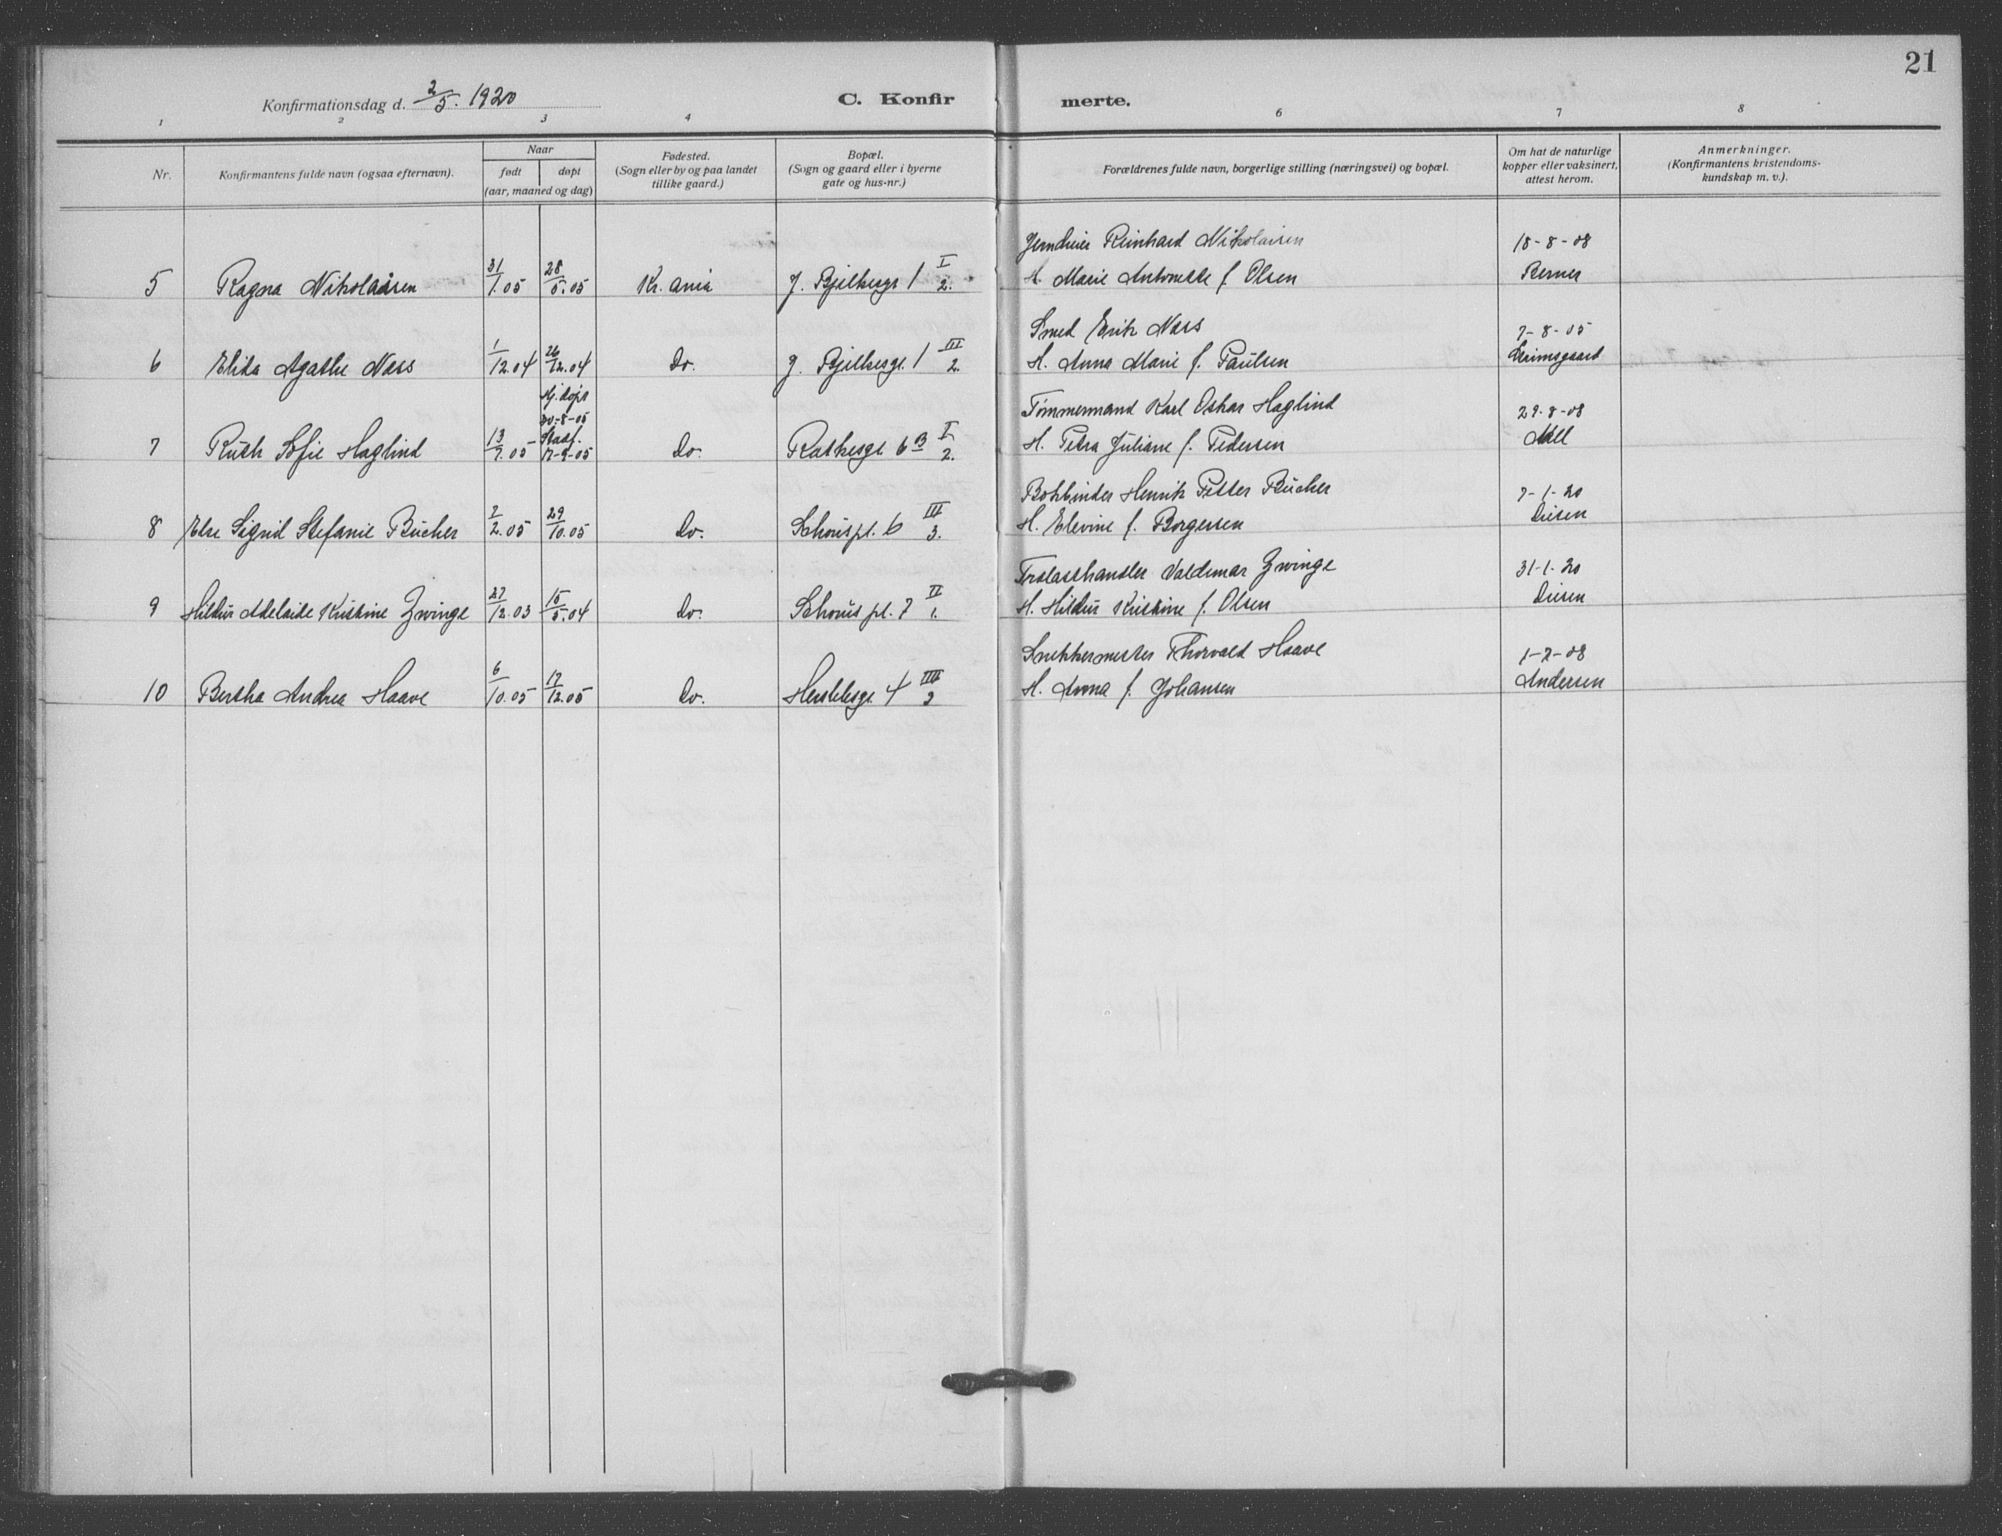 21
Konfirmationsdag d. 2/5. 1920
C. Konfir merte.
1 2 3 4 6 7 8
Nr.
Konfirmantens fulde navn (ogsaa efternavn).
Naar
født
døpt
(aar, maaned og dag)
Fødested.
(Sogn eller by og paa landet
tillike gaard.)
Bopæl.
(Sogn og gaard eller i byerne
gate og hus-nr.)
Forældrenes fulde navn, borgerlige stilling (næringsvei) og bopæl.
Om hat de naturlige
kopper eller vaksinert,
attest herom.
Anmerkninger.
(Konfirmantens kristendoms-
kundskap m. v.).
Reinhard Nikolaisen 18-8-08
5 Ragna Nikolaisen 31/1.05 28/5.05 Kr.ania J. Bjelkesgt 1 I/2. H. Marie Antonette f. Olsen Berner
Smed Erik Næss 7-8-05
6 Elida Agathe Næss 1/12.04 26/12.04 Do. J. Bjelkesgt. 1 III/2. H. Anna Marie f. Paulsen
Hj. døpt
30-8-05
Tømmermand Karl Oskar Haglind 29-8-08
Stadf.
7 Ruth Sofie Haglind 13/7.05 - 17-9-05 Do. Rathkesgt 6 B I/2. H. Petra Juliane f. Pedersen
Bokbinder Henrik Petter Bücher 7-1-20
8 Else Sigrid Stefanie Bücher 7/2.05 29/10.05 Do. Schouspl. 6 III/3. H. Elevine f. Borgersen Diesen
Trælasthandler Valdemar Zwinge 31-1-20
9 Hildur Adelaide Kristine Zwinge 27/12.03 15/5.04 Do. Schous pl. 7 II/1. H. Hildur Kristine f. Olsen Diesen
Snekkermester Thorvald Haave 1-7-08
10 Bertha Andrea Haave 6/10.05 17/12.05 Do. Herslebsgt. 4 III/3 H. Anna f. Johansen Andersen